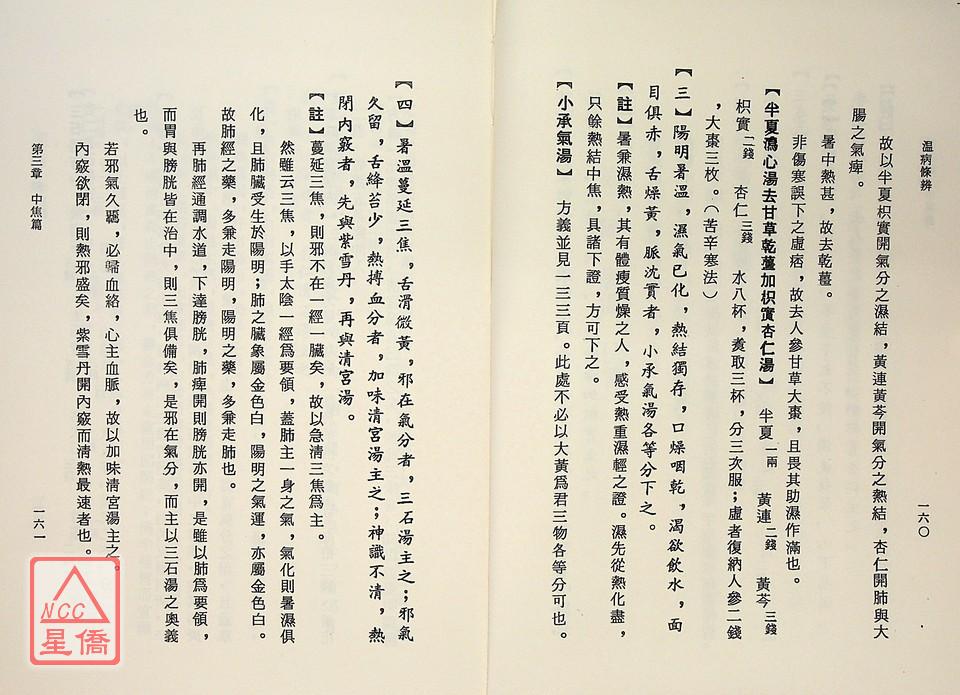 溫病條辨
一六〇
故以半夏枳實開氣分之濕結，黃連黃芩開氣分之熱結，杏仁開肺與大
腸之氣痺。
暑中熱甚，故去乾薑。
非傷寒誤下之虛痞，故去人參甘草大棗，且畏其助濕作滿也。
【半夏瀉心湯去甘草乾薑加枳實杏仁湯】　半夏一兩　黃連二錢　黃芩三錢
枳實二錢　杏仁三錢　水八杯，煑取三杯，分三次服；虛者復納人參二錢
，大棗三枚。（苦辛寒法）
【三】陽明暑溫，濕氣已化，熱結獨存，口燥咽乾，渴欲飲水，面
目俱赤，舌燥黃，脈沈實者，小承氣湯各等分下之。
【註】暑兼濕熱，其有體瘦質燥之人，感受熱重濕輕之證。濕先從熱化盡，
只餘熱結中焦，具諸下證，方可下之。
【小承氣湯】　方義並見一三三頁。此處不必以大黃爲君三物各等分可也。
【四】暑溫蔓延三焦，舌滑微黃，邪在氣分者，三石湯主之；邪氣
久留，舌絳苔少，熱搏血分者，加味清宮湯主之；神識不清，熱
閉內竅者，先與紫雪丹，再與清宮湯。
【註】蔓延三焦，則邪不在一經一臟矣，故以急清三焦爲主。
然雖云三焦，以手太陰一經爲要領，蓋肺主一身之氣，氣化則暑濕俱
化，且肺臟受生於陽明；肺之臟象屬金色白，陽明之氣運，亦屬金色白。
故肺經之藥，多兼走陽明，陽明之藥，多兼走肺也。
再肺經通調水道，下達膀胱，肺痺開則膀胱亦開，是雖以肺爲要領，
而胃與膀胱皆在治中，則三焦俱備矣，是邪在氣分，而主以三石湯之奧義
也。
若邪氣久羈，必歸血絡，心主血脈，故以加味清宮湯主之。
內竅欲閉，則熱邪盛矣，紫雪丹開內竅而清熱最速者也。
第三章　中焦篇
一六一
NCC
星僑